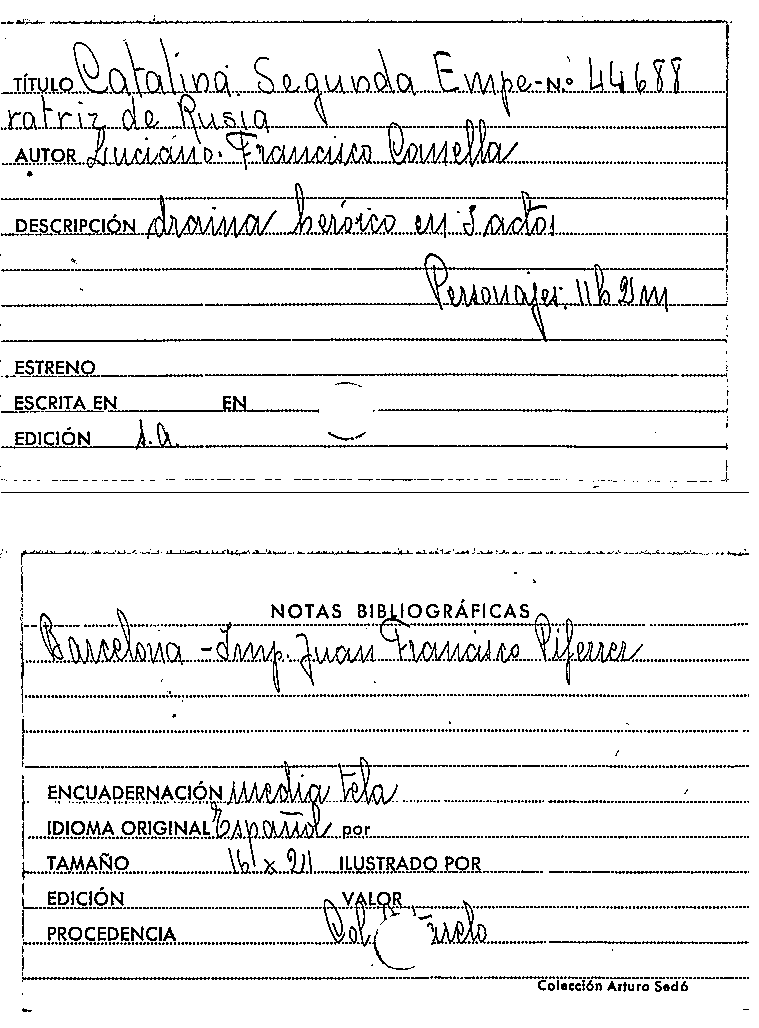 TÍTULO Catalina Segunda Empe- Nº 44688
ratriz de Rusia
AUTOR Luciano Francisco Comella
DESCRIPCIÓN drama heróico en 3 actos
Personajes: 11h 2m
ESTRENO
ESCRITA EN EN
EDICIÓN s.a.
NOTAS BIBLIOGRÁFICAS
Barcelona - Imp. Juan Francisco Piferrer
ENCUADERNACIÓN media tela
IDIOMA ORIGINAL Español por
TAMAÑO 16 x 21 ILUSTRADO POR
EDICIÓN VALOR
PROCEDENCIA Col.
Colección Arturo Sedó